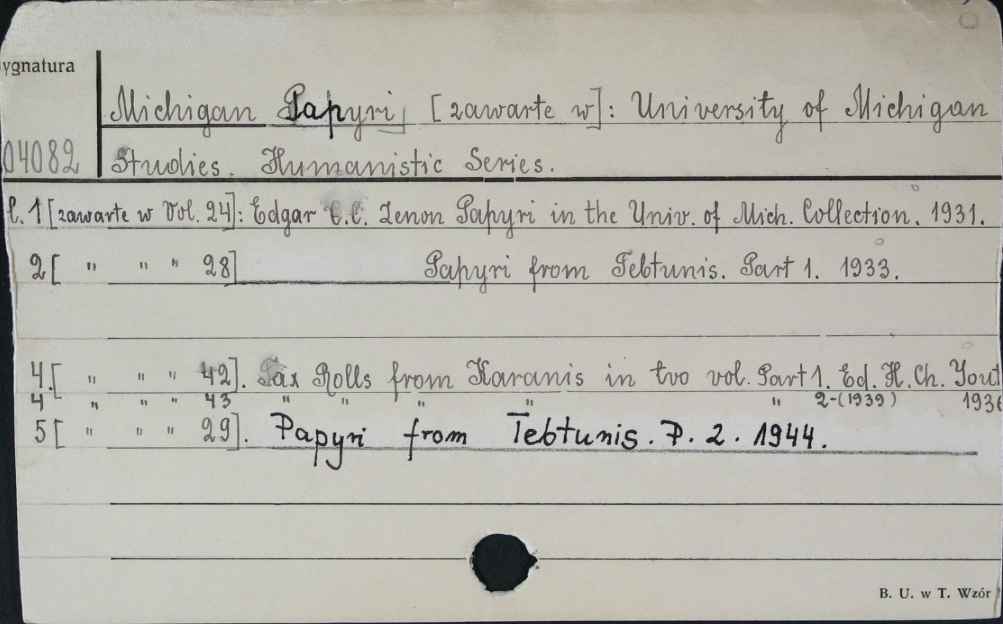 ygnatura
Michigan Papyri [zawarte w]: University of Michigan
04082 Studies. Humanistic Series.
t. 1 [zawarte w Vol. 24]: Edgar C.C. Zenon Papyri in the Univ. of Mich. Collection. 1931.
2 [ " " " 28] Papyri from Tebtunis. Part 1. 1933.
4.[ " " " 42]. Tax Rolls from Karanis in two vol. Part 1. Ed. H. Ch. Yout
4 " " " 43 " " " " " 2-(1939) 1936
5 [ " " " 29]. Papyri from Tebtunis. P. 2. 1944.
B. U. w T. Wzór